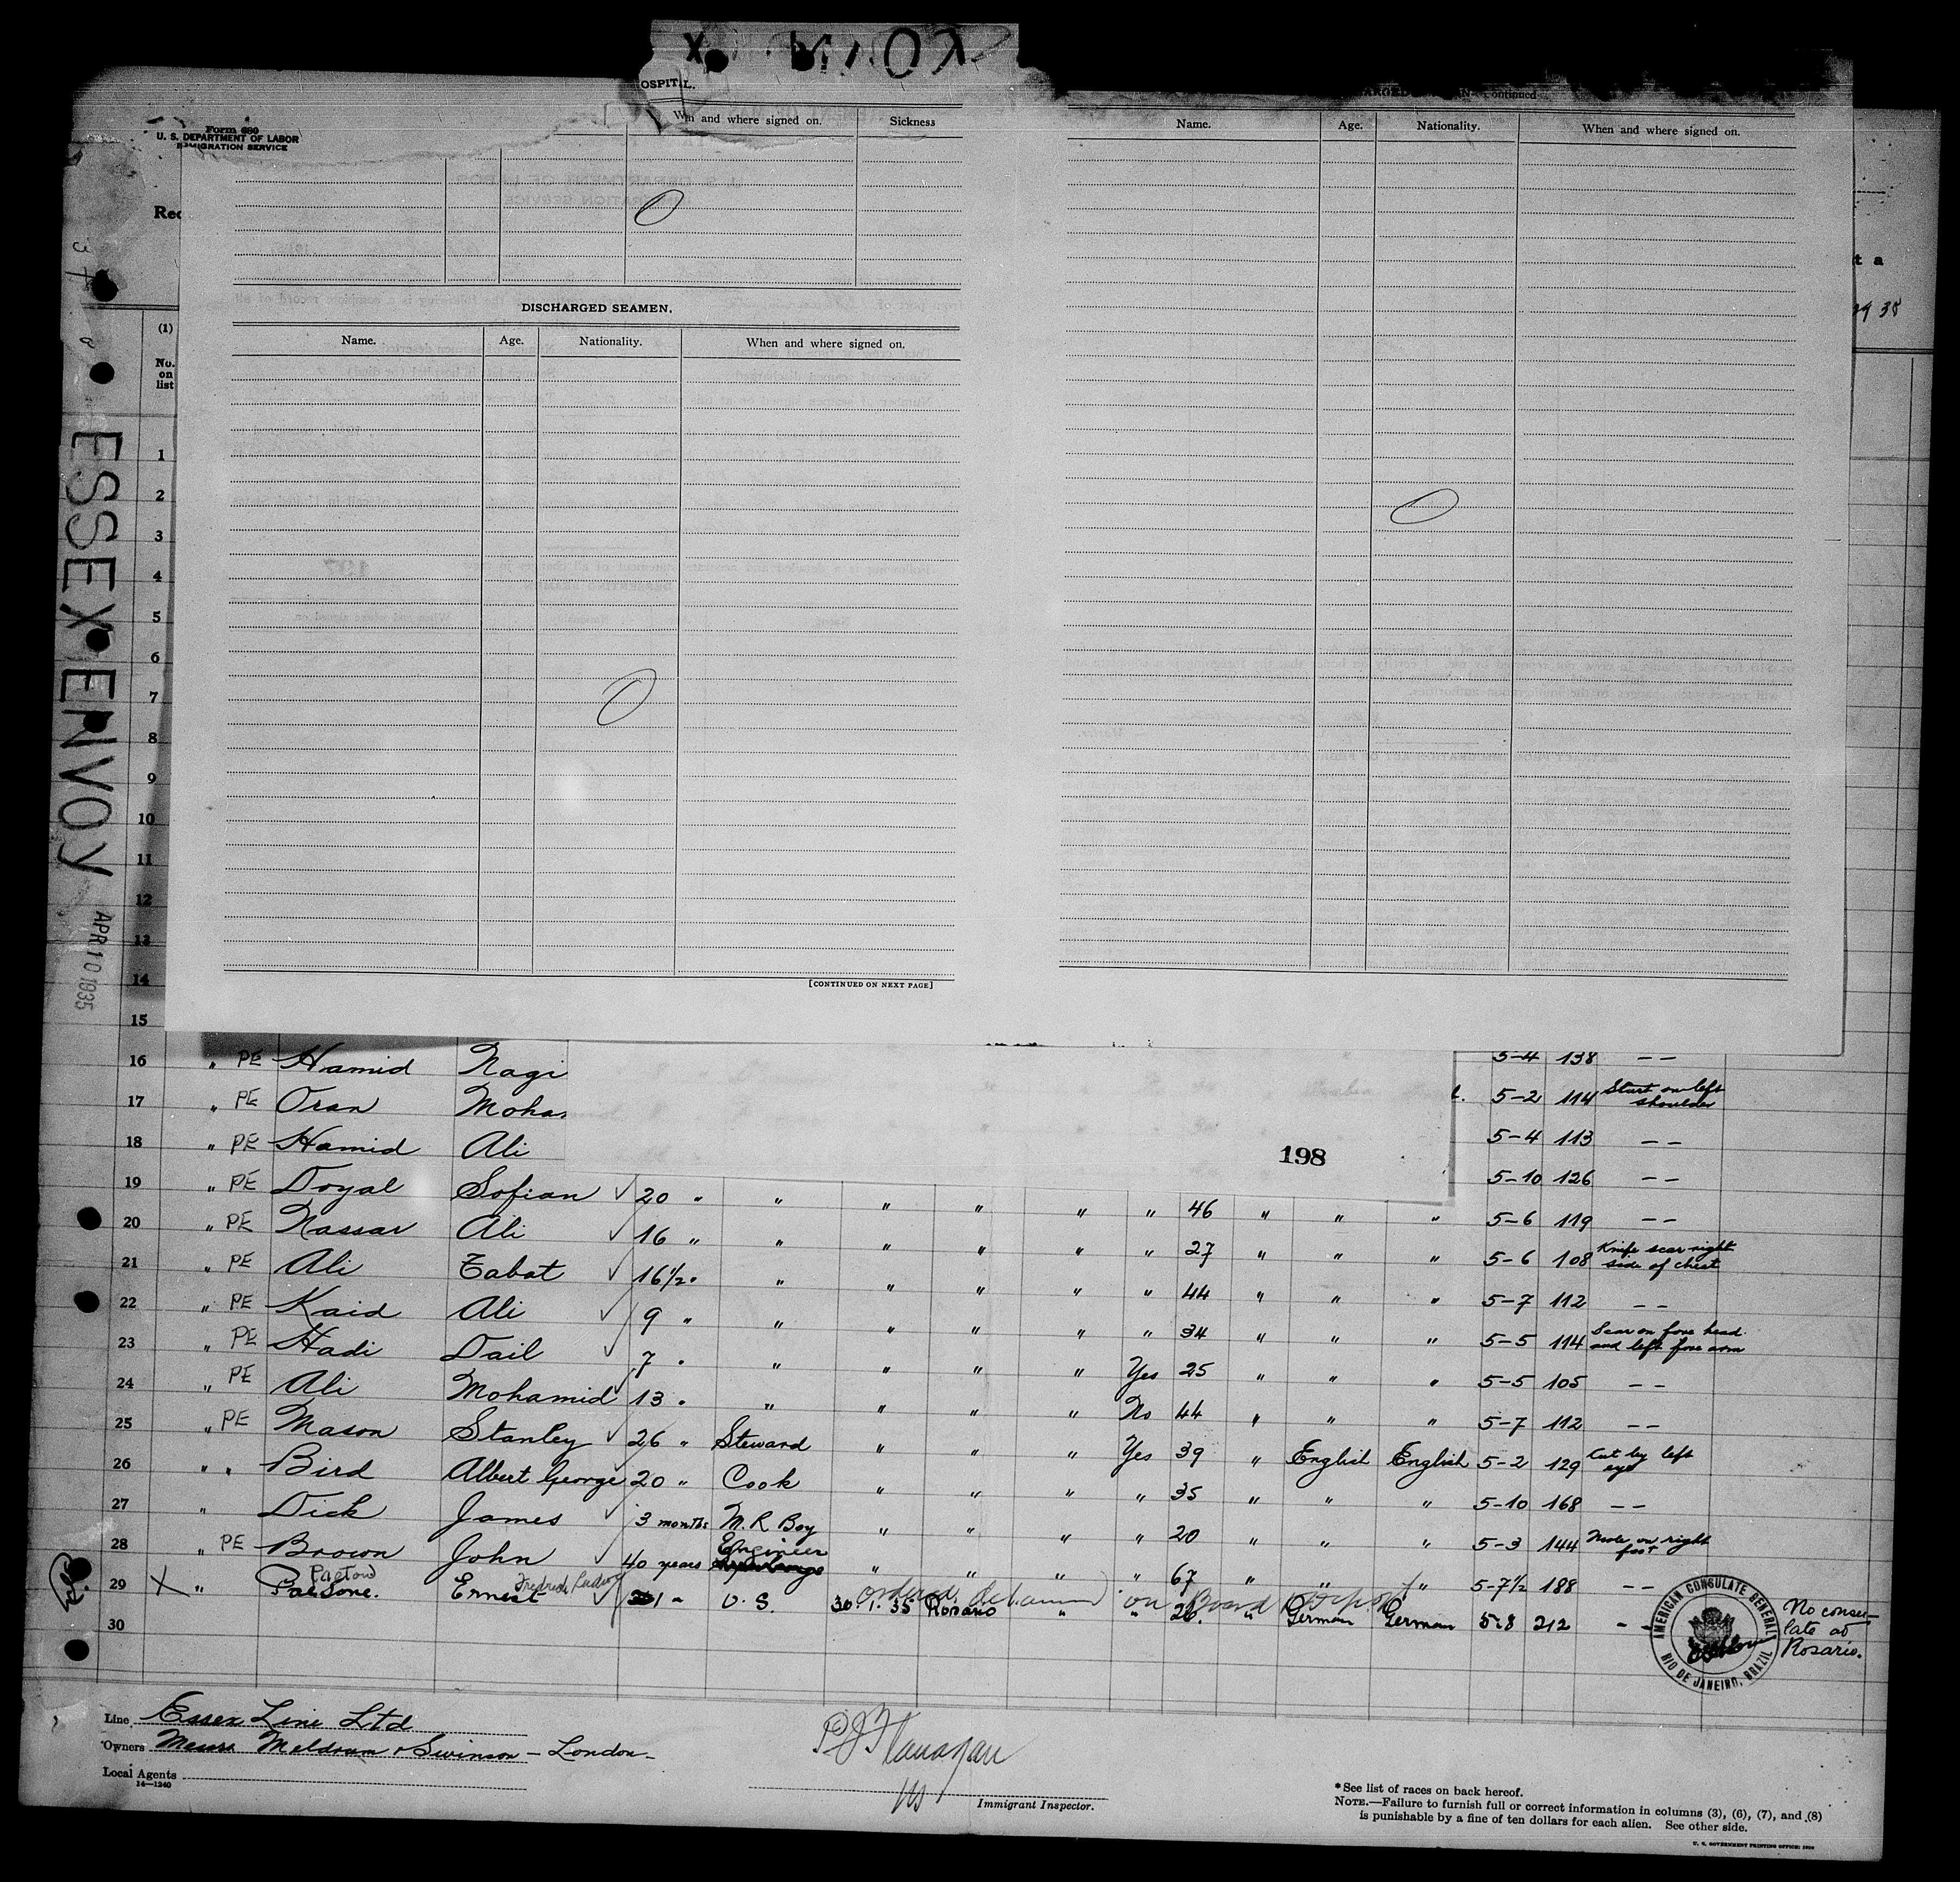 OSPITAL.
Sickness
Form 680
U. S. DEPARTMENT OF LABOR
IMMIGRATION SERVICE
Name. Age. Nationality. When and where signed on.
DISCHARGED SEAMEN.
Name. Age. Nationality. When and where signed on.
[CONTINUED ON NEXT PAGE]
t a
(1)
No.
on
list
ESSEX ENVOY
APR 10 1935
1
2
3
4
5
6
7
8
9
10
11
12
13
14
15
16 " PE Hamid Nagi 5-4 138 – –
17 " PE Oran Moha 5-2 114 left shoulder
18 " PE Hamid Ali 5-4 113 – –
198
19 " PE Doyal Sofian ✓ 20 " " " " " " 46 " " " 5-10 126 – –
20 " PE Nassar Ali ✓ 16 " " " " " " 27 " " " 5-6 119 – –
21 " PE Ali Tabat ✓ 16½ " " " " " " 44 " " " 5-6 108 Knife scar right side of chest
22 " PE Kaid Ali ✓ 9 " " " " " " 34 " " " 5-7 112 – –
23 " PE Hadi Dail ✓ 7 " " " " " Yes 25 " " " 5-5 114 Scar on fore head and left fore arm
24 " PE Ali Mohamid ✓ 13 " " " " " No 44 " " " 5-5 105 – –
25 " PE Mason Stanley ✓ 26 " Steward " " " Yes 39 " English English 5-7 112 – –
26 " " Bird Albert George 20 " Cook " " " " 35 " " " 5-2 129 Cut by left eye
27 " Dick James ✓ 3 months M. R Boy " " " " 20 " " " 5-10 168 – –
28 " PE Brown John ✓ 40 years Engineer " " " " 67 " " " 5-3 144 Mole on right foot
5-7½ 188 – –
ordered detained on board
29 X " Ernest 1 " O. S. 30. 1. 35 Rosario " " 26. " German German 5-8 212 – –
30
AMERICAN CONSULATE GENERAL
RIO DE JANEIRO, BRAZIL
No consu-
late at
Rosario.
Line Essex Line Ltd
Owners Messrs Meldrum & Swinson – London –
Local Agents
14—1240
P J Flanagan
Immigrant Inspector.
* See list of races on back hereof.
NOTE.—Failure to furnish full or correct information in columns (3), (6), (7), and (8)
is punishable by a fine of ten dollars for each alien. See other side.